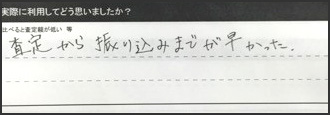 実際に利用してどう思いましたか？
比べると査定額が低い 等
査定から振り込みまでが早かった.